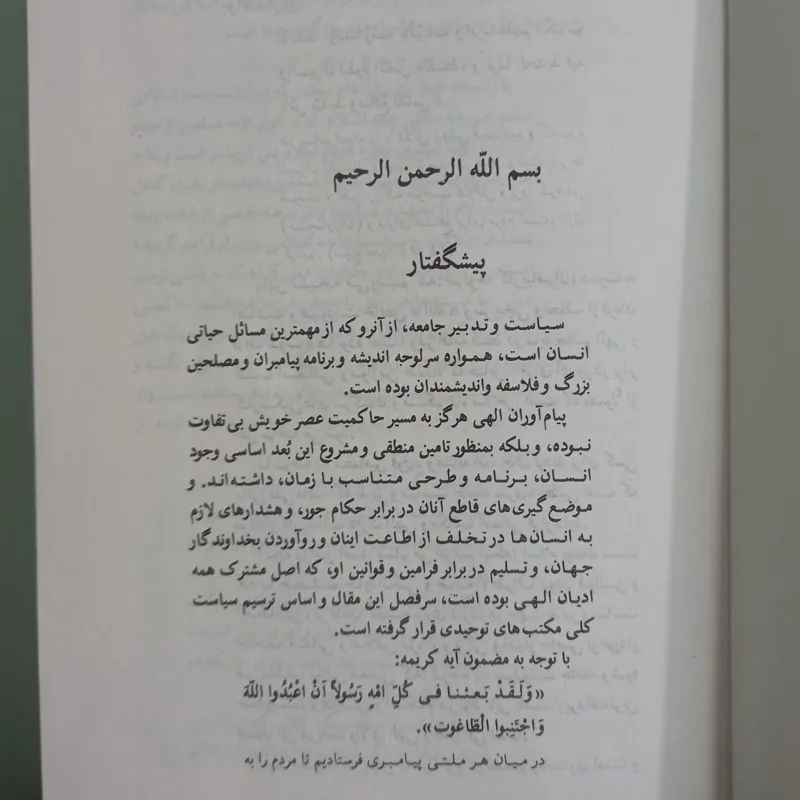 بسم اللّه الرحمن الرحیم
پیشگفتار
سیاست و تدبیر جامعه، از آنرو که از مهمترین مسائل حیاتی
انسان است، همواره سرلوحه اندیشه و برنامه پیامبران و مصلحین
بزرگ و فلاسفه و اندیشمندان بوده است.
پیام‌آوران الهی هرگز به مسیر حاکمیت عصر خویش بی‌تفاوت
نبوده، و بلکه بمنظور تامین منطقی و مشروع این بُعد اساسی وجود
انسان، برنامه و طرحی متناسب با زمان، داشته‌اند. و
موضع‌گیری‌های قاطع آنان در برابر حکام جور، و هشدارهای لازم
به انسان‌ها در تخلف از اطاعت اینان و روآوردن بخداوندگار
جهان، و تسلیم در برابر فرامین و قوانین او، که اصل مشترک همه
ادیان الهی بوده است، سرفصل این مقال و اساس ترسیم سیاست
کلی مکتب‌های توحیدی قرار گرفته است.
با توجه به مضمون آیه کریمه:
«وَلَقَدْ بَعثنا فی کُلِّ امْهٍ رَسُولاً اَنْ اعْبُدُوا اللّهَ
وَاجْتَنِبوا الْطّاغوت».
در میان هر ملتی پیامبری فرستادیم تا مردم را به